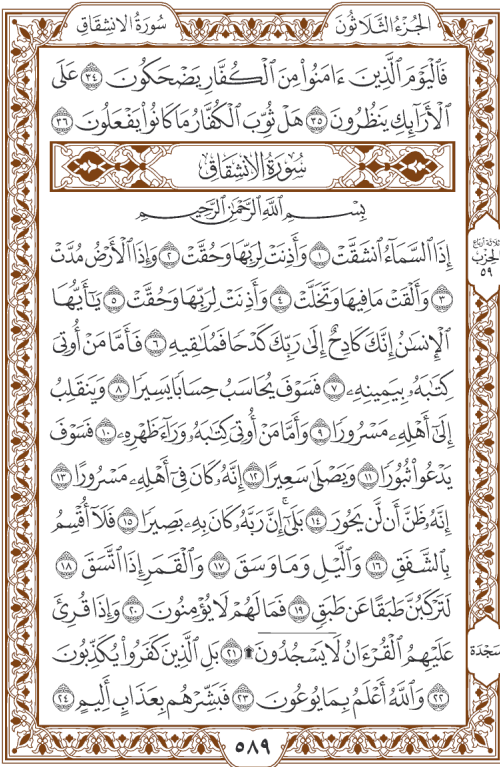 الجُزءُ الثَّلَاثُونَ
سُورَةُ الانشِقَاقِ
فَٱلْيَوْمَ ٱلَّذِينَ ءَامَنُوا۟ مِنَ ٱلْكُفَّارِ يَضْحَكُونَ ٣٤ عَلَى
ٱلْأَرَآئِكِ يَنظُرُونَ ٣٥ هَلْ ثُوِّبَ ٱلْكُفَّارُ مَا كَانُوا۟ يَفْعَلُونَ ٣٦
سُورَةُ الانشِقَاقِ
بِسْمِ ٱللَّهِ ٱلرَّحْمَٰنِ ٱلرَّحِيمِ
إِذَا ٱلسَّمَآءُ ٱنشَقَّتْ ١ وَأَذِنَتْ لِرَبِّهَا وَحُقَّتْ ٢ وَإِذَا ٱلْأَرْضُ مُدَّتْ
٣ وَأَلْقَتْ مَا فِيهَا وَتَخَلَّتْ ٤ وَأَذِنَتْ لِرَبِّهَا وَحُقَّتْ ٥ يَٰٓأَيُّهَا
ٱلْإِنسَٰنُ إِنَّكَ كَادِحٌ إِلَىٰ رَبِّكَ كَدْحًا فَمُلَٰقِيهِ ٦ فَأَمَّا مَنْ أُوتِىَ
كِتَٰبَهُۥ بِيَمِينِهِۦ ٧ فَسَوْفَ يُحَاسَبُ حِسَابًا يَسِيرًا ٨ وَيَنقَلِبُ
إِلَىٰٓ أَهْلِهِۦ مَسْرُورًا ٩ وَأَمَّا مَنْ أُوتِىَ كِتَٰبَهُۥ وَرَآءَ ظَهْرِهِۦ ١٠ فَسَوْفَ
يَدْعُوا۟ ثُبُورًا ١١ وَيَصْلَىٰ سَعِيرًا ١٢ إِنَّهُۥ كَانَ فِىٓ أَهْلِهِۦ مَسْرُورًا ١٣
إِنَّهُۥ ظَنَّ أَن لَّن يَحُورَ ١٤ بَلَىٰٓۚ إِنَّ رَبَّهُۥ كَانَ بِهِۦ بَصِيرًا ١٥ فَلَآ أُقْسِمُ
بِٱلشَّفَقِ ١٦ وَٱلَّيْلِ وَمَا وَسَقَ ١٧ وَٱلْقَمَرِ إِذَا ٱتَّسَقَ ١٨
لَتَرْكَبُنَّ طَبَقًا عَن طَبَقٍ ١٩ فَمَا لَهُمْ لَا يُؤْمِنُونَ ٢٠ وَإِذَا قُرِئَ
عَلَيْهِمُ ٱلْقُرْءَانُ لَا يَسْجُدُونَ ۩ ٢١ بَلِ ٱلَّذِينَ كَفَرُوا۟ يُكَذِّبُونَ
٢٢ وَٱللَّهُ أَعْلَمُ بِمَا يُوعُونَ ٢٣ فَبَشِّرْهُم بِعَذَابٍ أَلِيمٍ ٢٤
ثلاثة أرباع
الحِزْب
٥٩
سَجْدَة
٥٨٩